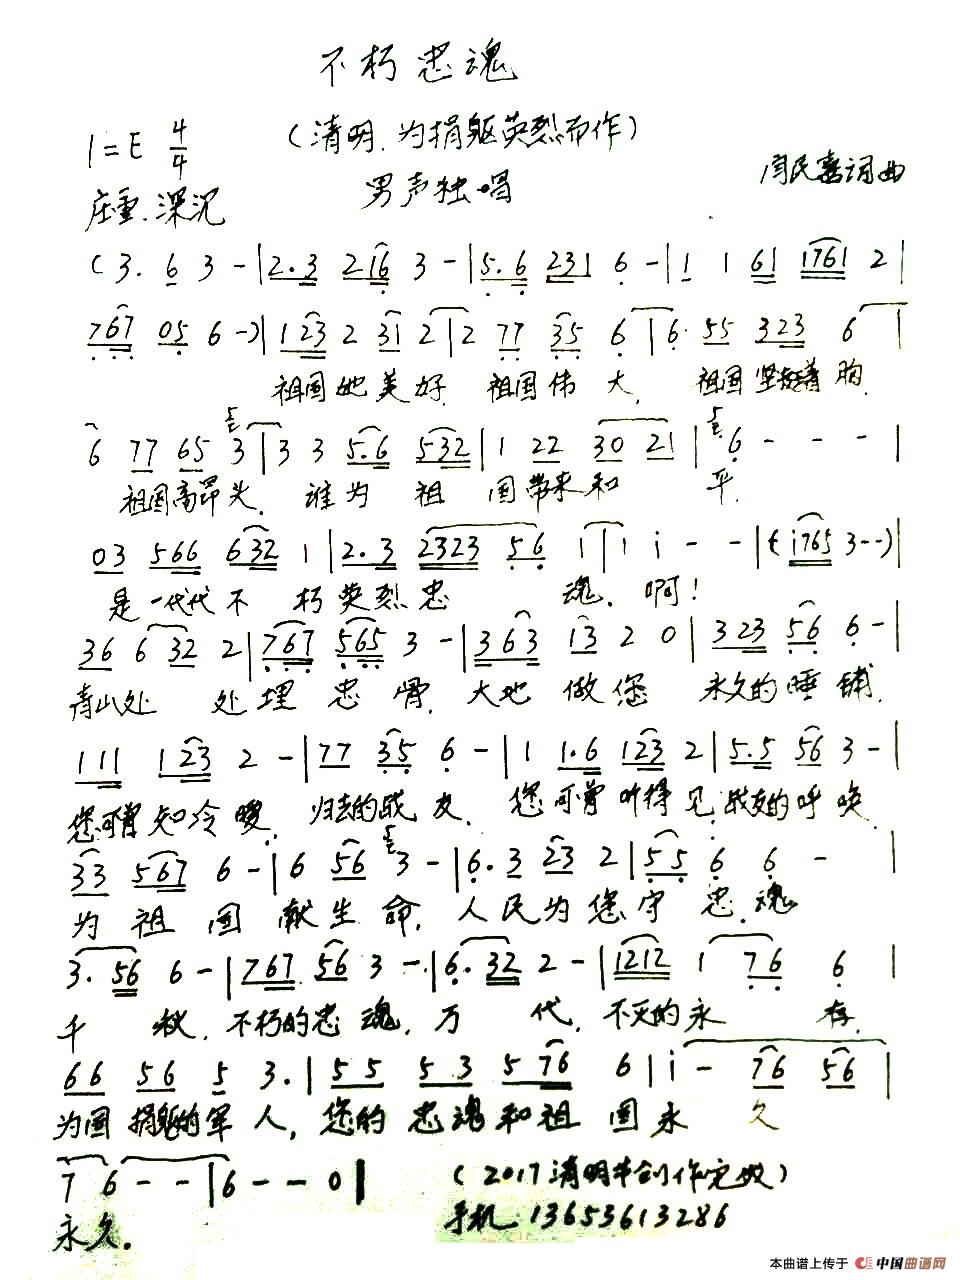 不朽忠魂
(清明、为捐躯英烈而作)
1=E 4/4
男声独唱
闫民喜词曲
庄重、深沉
(3. 6 3 - | 2.3 216 3 - | 5.6 231 6 - | 1 1 61 1761 2 |
767 05 6 -) | 123 2 31 2 | 2 77 35 6 | 6. 55 323 6 |
祖国她美好 祖国伟大, 祖国坚挺着胸
6 77 65 3 | 3 3 5.6 532 | 1 22 30 21 | 6 - - - |
祖国高昂头, 谁为祖国带来和平.
03 566 632 1 | 2.3 2323 56 i | i i - - | (i765 3 - -) |
是一代代不朽英烈忠魂. 啊!
36 6 32 2 | 767 565 3 - | 363 13 2 0 | 323 56 6 - |
青山处处埋忠骨, 大地做您永久的睡铺.
111 123 2 - | 77 35 6 - | 1 1.6 123 2 | 5.5 56 3 - |
您可曾知冷暖, 归去的战友, 您可曾听得见战友的呼唤.
33 567 6 - | 6 56 3 - | 6.3 23 2 | 55 6 6 - |
为祖国献生命, 人民为您守忠魂
3. 56 6 - | 767 56 3 - | 6.32 2 - | 1212 1 76 6 |
千秋, 不朽的忠魂, 万代, 不灭的永存.
66 56 5 3. | 55 53 576 6 | i - 76 56 |
为国捐躯的军人, 您的忠魂和祖国永久
7 6 - - | 6 - - 0 |
(2017清明节创作完毕)
永久.
手机 13653613286
本曲谱上传于 中国曲谱网